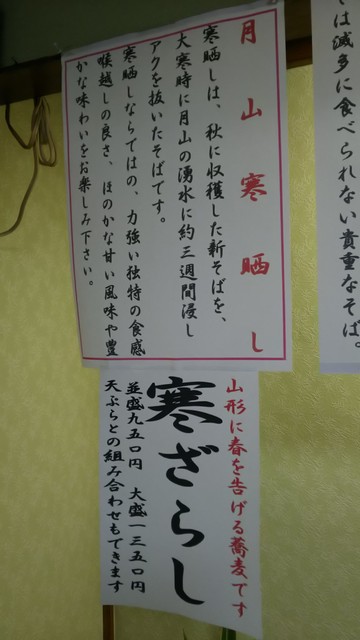 は滅多に食べられない貴重なそば。
月山寒晒し
寒晒しは、秋に収穫した新そばを、
大寒時に月山の湧水に約三週間浸し
アクを抜いたそばです。
寒晒しならではの、力強い独特の食感
喉越しの良さ、ほのかな甘い風味や豊
かな味わいをお楽しみ下さい。
山形に春を告げる蕎麦です
寒ざらし
並盛九五〇円 大盛一三五〇円
天ぷらとの組み合わせもできます